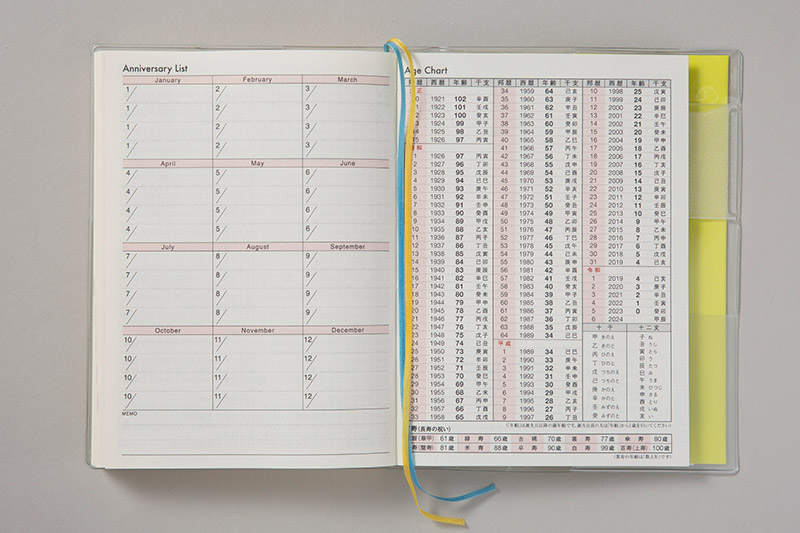 Anniversary List
January February March
1/ 2/ 3/
1/ 2/ 3/
1/ 2/ 3/
1/ 2/ 3/
April May June
4/ 5/ 6/
4/ 5/ 6/
4/ 5/ 6/
4/ 5/ 6/
July August September
7/ 8/ 9/
7/ 8/ 9/
7/ 8/ 9/
7/ 8/ 9/
October November December
10/ 11/ 12/
10/ 11/ 12/
10/ 11/ 12/
10/ 11/ 12/
MEMO
Age Chart
邦暦 西暦 年齢 干支
正
0 1921 102 辛酉
1 1922 101 壬戌
2 1923 100 癸亥
3 1924 99 甲子
4 1925 98 乙丑
15 1926 97 丙寅
和
1 1926 97 丙寅
2 1927 96 丁卯
3 1928 95 戊辰
4 1929 94 己巳
5 1930 93 庚午
6 1931 92 辛未
7 1932 91 壬申
8 1933 90 癸酉
9 1934 89 甲戌
10 1935 88 乙亥
11 1936 87 丙子
12 1937 86 丁丑
13 1938 85 戊寅
14 1939 84 己卯
15 1940 83 庚辰
16 1941 82 辛巳
17 1942 81 壬午
18 1943 80 癸未
19 1944 79 甲申
20 1945 78 乙酉
21 1946 77 丙戌
22 1947 76 丁亥
23 1948 75 戊子
24 1949 74 己丑
25 1950 73 庚寅
26 1951 72 辛卯
27 1952 71 壬辰
28 1953 70 癸巳
29 1954 69 甲午
30 1955 68 乙未
31 1956 67 丙申
32 1957 66 丁酉
33 1958 65 戊戌
邦暦 西暦 年齢 干支
34 1959 64 己亥
35 1960 63 庚子
36 1961 62 辛丑
37 1962 61 壬寅
38 1963 60 癸卯
39 1964 59 甲辰
40 1965 58 乙巳
41 1966 57 丙午
42 1967 56 丁未
43 1968 55 戊申
44 1969 54 己酉
45 1970 53 庚戌
46 1971 52 辛亥
47 1972 51 壬子
48 1973 50 癸丑
49 1974 49 甲寅
50 1975 48 乙卯
51 1976 47 丙辰
52 1977 46 丁巳
53 1978 45 戊午
54 1979 44 己未
55 1980 43 庚申
56 1981 42 辛酉
57 1982 41 壬戌
58 1983 40 癸亥
59 1984 39 甲子
60 1985 38 乙丑
61 1986 37 丙寅
62 1987 36 丁卯
63 1988 35 戊辰
64 1989 34 己巳
平成
1 1989 34 己巳
2 1990 33 庚午
3 1991 32 辛未
4 1992 31 壬申
5 1993 30 癸酉
6 1994 29 甲戌
7 1995 28 乙亥
8 1996 27 丙子
9 1997 26 丁丑
邦暦 西暦 年齢 干支
10 1998 25 戊寅
11 1999 24 己卯
12 2000 23 庚辰
13 2001 22 辛巳
14 2002 21 壬午
15 2003 20 癸未
16 2004 19 甲申
17 2005 18 乙酉
18 2006 17 丙戌
19 2007 16 丁亥
20 2008 15 戊子
21 2009 14 己丑
22 2010 13 庚寅
23 2011 12 辛卯
24 2012 11 壬辰
25 2013 10 癸巳
26 2014 9 甲午
27 2015 8 乙未
28 2016 7 丙申
29 2017 6 丁酉
30 2018 5 戊戌
31 2019 4 己亥
令和
1 2019 4 己亥
2 2020 3 庚子
3 2021 2 辛丑
4 2022 1 壬寅
5 2023 0 癸卯
6 2024 甲辰
十干
甲 きのえ
乙 きのと
丙 ひのえ
丁 ひのと
戊 つちのえ
己 つちのと
庚 かのえ
辛 かのと
壬 みずのえ
癸 みずのと
十二支
子 ね
丑 うし
寅 とら
卯 う
辰 たつ
巳 み
午 うま
未 ひつじ
申 さる
酉 とり
戌 いぬ
亥 い
寿(長寿の祝い)
暦(華甲) 61歳 緑寿 66歳 古稀 70歳 喜寿 77歳 傘寿 80歳
寿(盤寿) 81歳 米寿 88歳 卒寿 90歳 白寿 99歳 百寿(上寿) 100歳
(賀寿の年齢は「数え年」です)